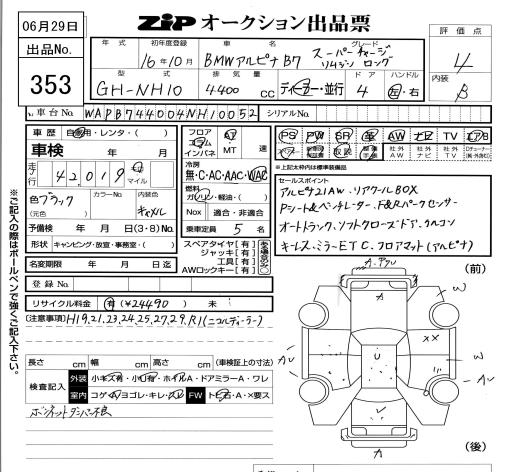 06月29日
ZIP オークション出品票
出品No.
353
年式 初年度登録 車名 グレード
16年10月 BMWアルピナ B7 スーパーチャージ リムジン ロング
型式 排気量 ドア ハンドル
GH-NH10 4400 CC ディーラー・並行 4 左・右
評価点
4
内装
B
車台No. WAPB744004NH10052 シリアルNo.
車歴 自家用・レンタ・( )
車検 年 月
走行 42,019 km マイル
色 ブラック カラーNo. 内装色
(元色) キャメル
予備検 年 月 日(3・8)No.
形状 キャンピング・放宣・事務室・( )
名変期限 年 月 日迄
登録No.
フロア AT
コラム
インパネ MT 速
冷房
無・C・AC・AAC・WAC
燃料
ガソリン・軽油・( )
Nox 適合・非適合
乗車定員 5 名
スペアタイヤ [有]
ジャッキ [有]
工具 [有]
AWロックキー [有]
PS PW SR 革 AW ナビ TV
社外 AW 社外 ナビ 社外 TV
※上記太わくは標準装備品
セールスポイント
アルピナ21AW.リアクールBOX
Pシート&ベンチレーター.F&Rパークセンサー
オートトランク.ソフトクローズドア.
キーレス.ミラーETC.フロアマット(アルピナ)
リサイクル料金 有 (¥24490) 未
(注意事項) H19.21.23.24.25.27.29.R1(ニコルディーラー)
長さ cm 幅 cm 高さ cm (車検証上の寸法)
検査記入 外装 小キズ有・小凹有・ホイルA・ドアミラーA・ワレ
室内 コゲA・ヨゴレ・キレ・スレ FW トビ石・A・×要ス
ボンネットダンパー不良
※ご記入の際はボールペンで強くご記入下さい。
(前)
A
W
××
W
U
A
(後)